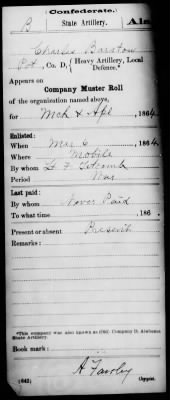 Confederate.
B State Artillery. Ala
Charles Barstow
Pvt, Co. D, Heavy Artillery, Local Defence.*
Appears on
Company Muster Roll
of the organization named above,
for Mch & Apl, 1864
Enlisted:
When Mar 6, 1864
Where Mobile
By whom Lt F Titcomb
Period War
Last paid:
By whom Never Paid
To what time , 186 .
Present or absent Present
Remarks:
*This company was also known as (Old) Company D, Alabama State Artillery.
Book mark:
(642)
Copyist.